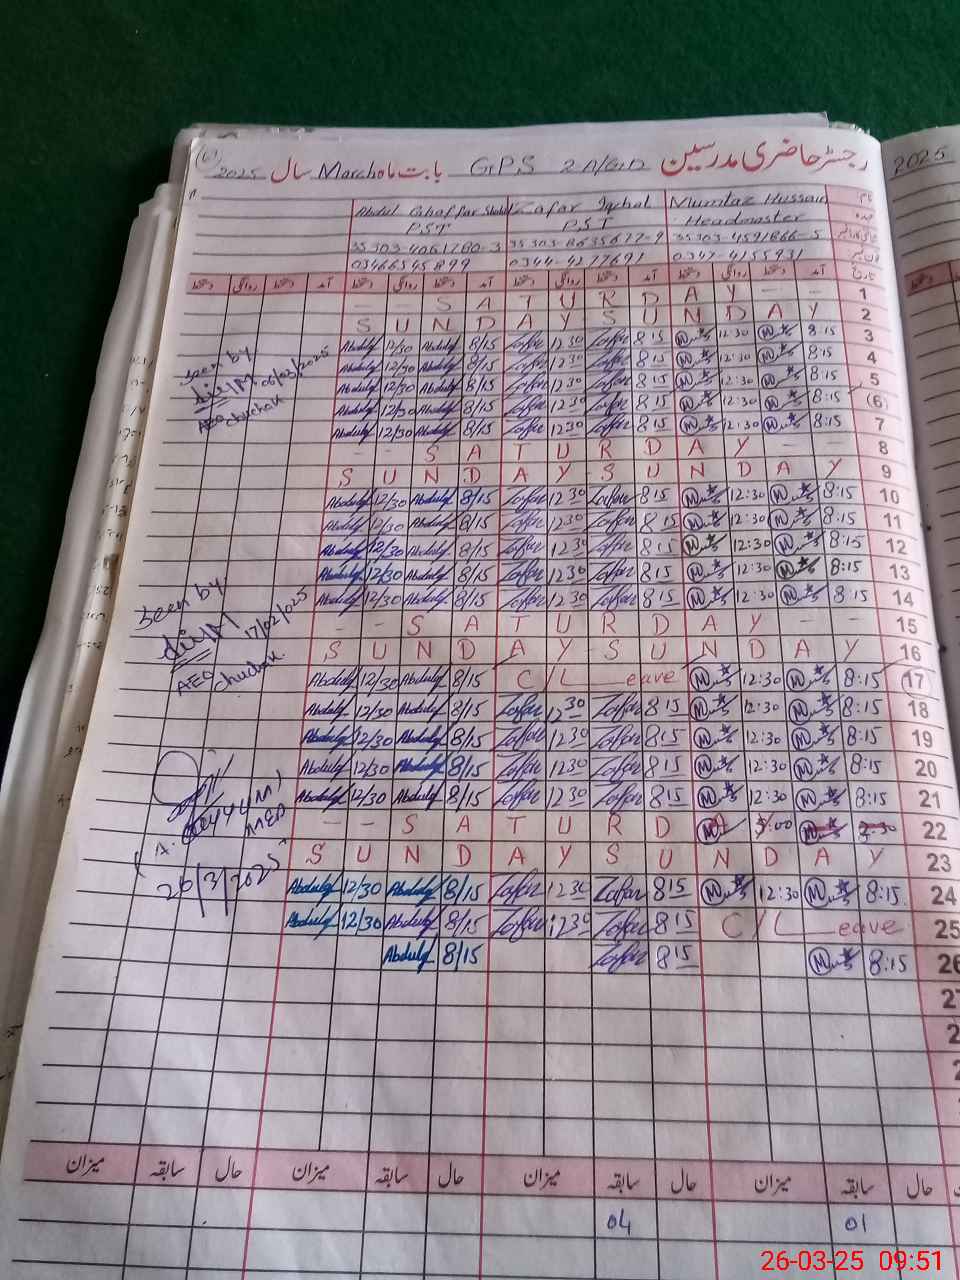 رجسٹر حاضری مدرسین G.P.S 2 A/G.D بابت ماہ March سال 2025
2025
Abdul Ghaffar Shahid Zafar Iqbal Mumtaz Hussain
PST PST Headmaster
35303-4061780-3 35303-8635677-9 35303-4591866-5
03466545899 0344-4277691 0347-4155931
دستخط روانگی دستخط آمد دستخط روانگی دستخط آمد دستخط روانگی دستخط آمد دستخط روانگی دستخط آمد تاریخ
– – S A T U R D A Y – – 1
S U N D A Y S U N D A Y 2
Abdulgf 12/30 Abdulgf 8/15 Zafar 12 30 Zafar 8 15 M 12:30 M 8:15 3
Abdulgf 12/30 Abdulgf 8/15 Zafar 12 30 Zafar 8 15 M 12:30 M 8:15 4
Abdulgf 12/30 Abdulgf 8/15 Zafar 12 30 Zafar 8 15 M 12:30 M 8:15 5
Abdulgf 12/30 Abdulgf 8/15 Zafar 12 30 Zafar 8 15 M 12:30 M 8:15 (6)
Abdulgf 12/30 Abdulgf 8/15 Zafar 12 30 Zafar 8 15 M 12:30 M 8:15 7
Seen by
06/03/2025
AEO chuchak
– – S A T U R D A Y – – 8
S U N D A Y S U N D A Y 9
Abdulgf 12/30 Abdulgf 8/15 Zafar 12 30 Zafar 8 15 M 12:30 M 8:15 10
Abdulgf 12/30 Abdulgf 8/15 Zafar 12 30 Zafar 8 15 M 12:30 M 8:15 11
Abdulgf 12/30 Abdulgf 8/15 Zafar 12 30 Zafar 8 15 M 12:30 M 8:15 12
Abdulgf 12/30 Abdulgf 8/15 Zafar 12 30 Zafar 8 15 M 12:30 M 8:15 13
Abdulgf 12/30 Abdulgf 8/15 Zafar 12 30 Zafar 8 15 M 12:30 M 8:15 14
– – S A T U R D A Y – – 15
S U N D A Y S U N D A Y 16
Seen by
17/02/2025
AEO chuchak
Abdulgf 12/30 Abdulgf 8/15 C/Leave M 12:30 M 8:15 17
Abdulgf 12/30 Abdulgf 8/15 Zafar 12 30 Zafar 8 15 M 12:30 M 8:15 18
Abdulgf 12/30 Abdulgf 8/15 Zafar 12 30 Zafar 8 15 M 12:30 M 8:15 19
Abdulgf 12/30 Abdulgf 8/15 Zafar 12 30 Zafar 8 15 M 12:30 M 8:15 20
Abdulgf 12/30 Abdulgf 8/15 Zafar 12 30 Zafar 8 15 M 12:30 M 8:15 21
– – S A T U R D 22
S U N D A Y S U N D A Y 23
26/3/2025
Abdulgf 12/30 Abdulgf 8/15 Zafar 12 30 Zafar 8 15 M 12:30 M 8:15 24
Abdulgf 12/30 Abdulgf 8/15 Zafar 12 30 Zafar 8 15 C/Leave 25
Abdulgf 8/15 Zafar 8 15 M 8:15 26
27
2
2
میزان سابقہ حال میزان سابقہ حال میزان سابقہ حال میزان سابقہ حال
04 01
26-03-25 09:51